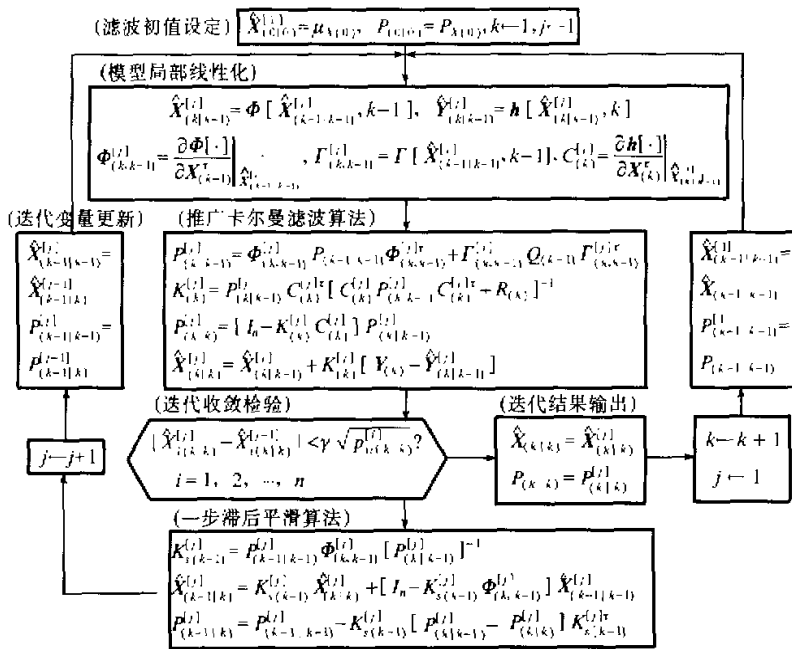 (滤波初值设定)
X̂^{[j]}_{(0|0)}=μ_{X(0)}, P_{(0|0)}=P_{X(0)}, k←1, j←1
(模型局部线性化)
X̂^{[j]}_{(k|k-1)}=Φ[X̂^{[j]}_{(k-1|k-1)},k-1], Ŷ^{[j]}_{(k|k-1)}=h[X̂^{[j]}_{(k|k-1)},k]
Φ^{[j]}_{(k,k-1)}=∂Φ[·]/∂X^τ_{(k-1)}|_{X̂^{[j]}_{(k-1|k-1)}}, Γ^{[j]}_{(k,k-1)}=Γ[X̂^{[j]}_{(k-1|k-1)},k-1], C^{[j]}_{(k)}=∂h[·]/∂X^τ_{(k)}|_{X̂^{[j]}_{(k|k-1)}}
(迭代变量更新)
X̂^{[j]}_{(k-1|k-1)}=
X̂^{[j-1]}_{(k-1|k)}
P^{[j]}_{(k-1|k-1)}=
P^{[j-1]}_{(k-1|k)}
(推广卡尔曼滤波算法)
P^{[j]}_{(k|k-1)}=Φ^{[j]}_{(k,k-1)}P_{(k-1|k-1)}Φ^{[j]τ}_{(k,k-1)}+Γ^{[j]}_{(k,k-1)}Q_{(k-1)}Γ^{[j]τ}_{(k,k-1)}
K^{[j]}_{(k)}=P^{[j]}_{(k|k-1)}C^{[j]τ}_{(k)}[C^{[j]}_{(k)}P^{[j]}_{(k|k-1)}C^{[j]τ}_{(k)}+R_{(k)}]^{-1}
P^{[j]}_{(k|k)}=[I_n-K^{[j]}_{(k)}C^{[j]}_{(k)}]P^{[j]}_{(k|k-1)}
X̂^{[j]}_{(k|k)}=X̂^{[j]}_{(k|k-1)}+K^{[j]}_{(k)}[Y_{(k)}-Ŷ^{[j]}_{(k|k-1)}]
X̂^{[1]}_{(k-1|k-1)}=
X̂_{(k-1|k-1)}
P^{[1]}_{(k-1|k-1)}=
P_{(k-1|k-1)}
(迭代收敛检验)
|X̂^{[j]}_{i(k|k)}-X̂^{[j-1]}_{i(k|k)}|<γ√p^{[j]}_{ii(k|k)}?
i=1, 2, ⋯, n
(迭代结果输出)
X̂_{(k|k)}=X̂^{[j]}_{(k|k)}
P_{(k|k)}=P^{[j]}_{(k|k)}
k←k+1
j←1
j←j+1
(一步滞后平滑算法)
K^{[j]}_{s(k-1)}=P^{[j]}_{(k-1|k-1)}Φ^{[j]}_{(k,k-1)}[P^{[j]}_{(k|k-1)}]^{-1}
X̂^{[j]}_{(k-1|k)}=K^{[j]}_{s(k-1)}X̂^{[j]}_{(k|k)}+[I_n-K^{[j]}_{s(k-1)}Φ^{[j]}_{(k,k-1)}]X̂^{[j]}_{(k-1|k-1)}
P^{[j]}_{(k-1|k)}=P^{[j]}_{(k-1|k-1)}-K^{[j]}_{s(k-1)}[P^{[j]}_{(k|k-1)}-P^{[j]}_{(k|k)}]K^{[j]τ}_{s(k-1)}